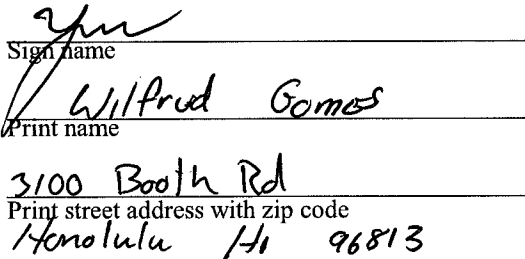 Sign name
Wilfrud Gomes
Print name
3100 Booth Rd
Print street address with zip code
Honolulu Hi 96813